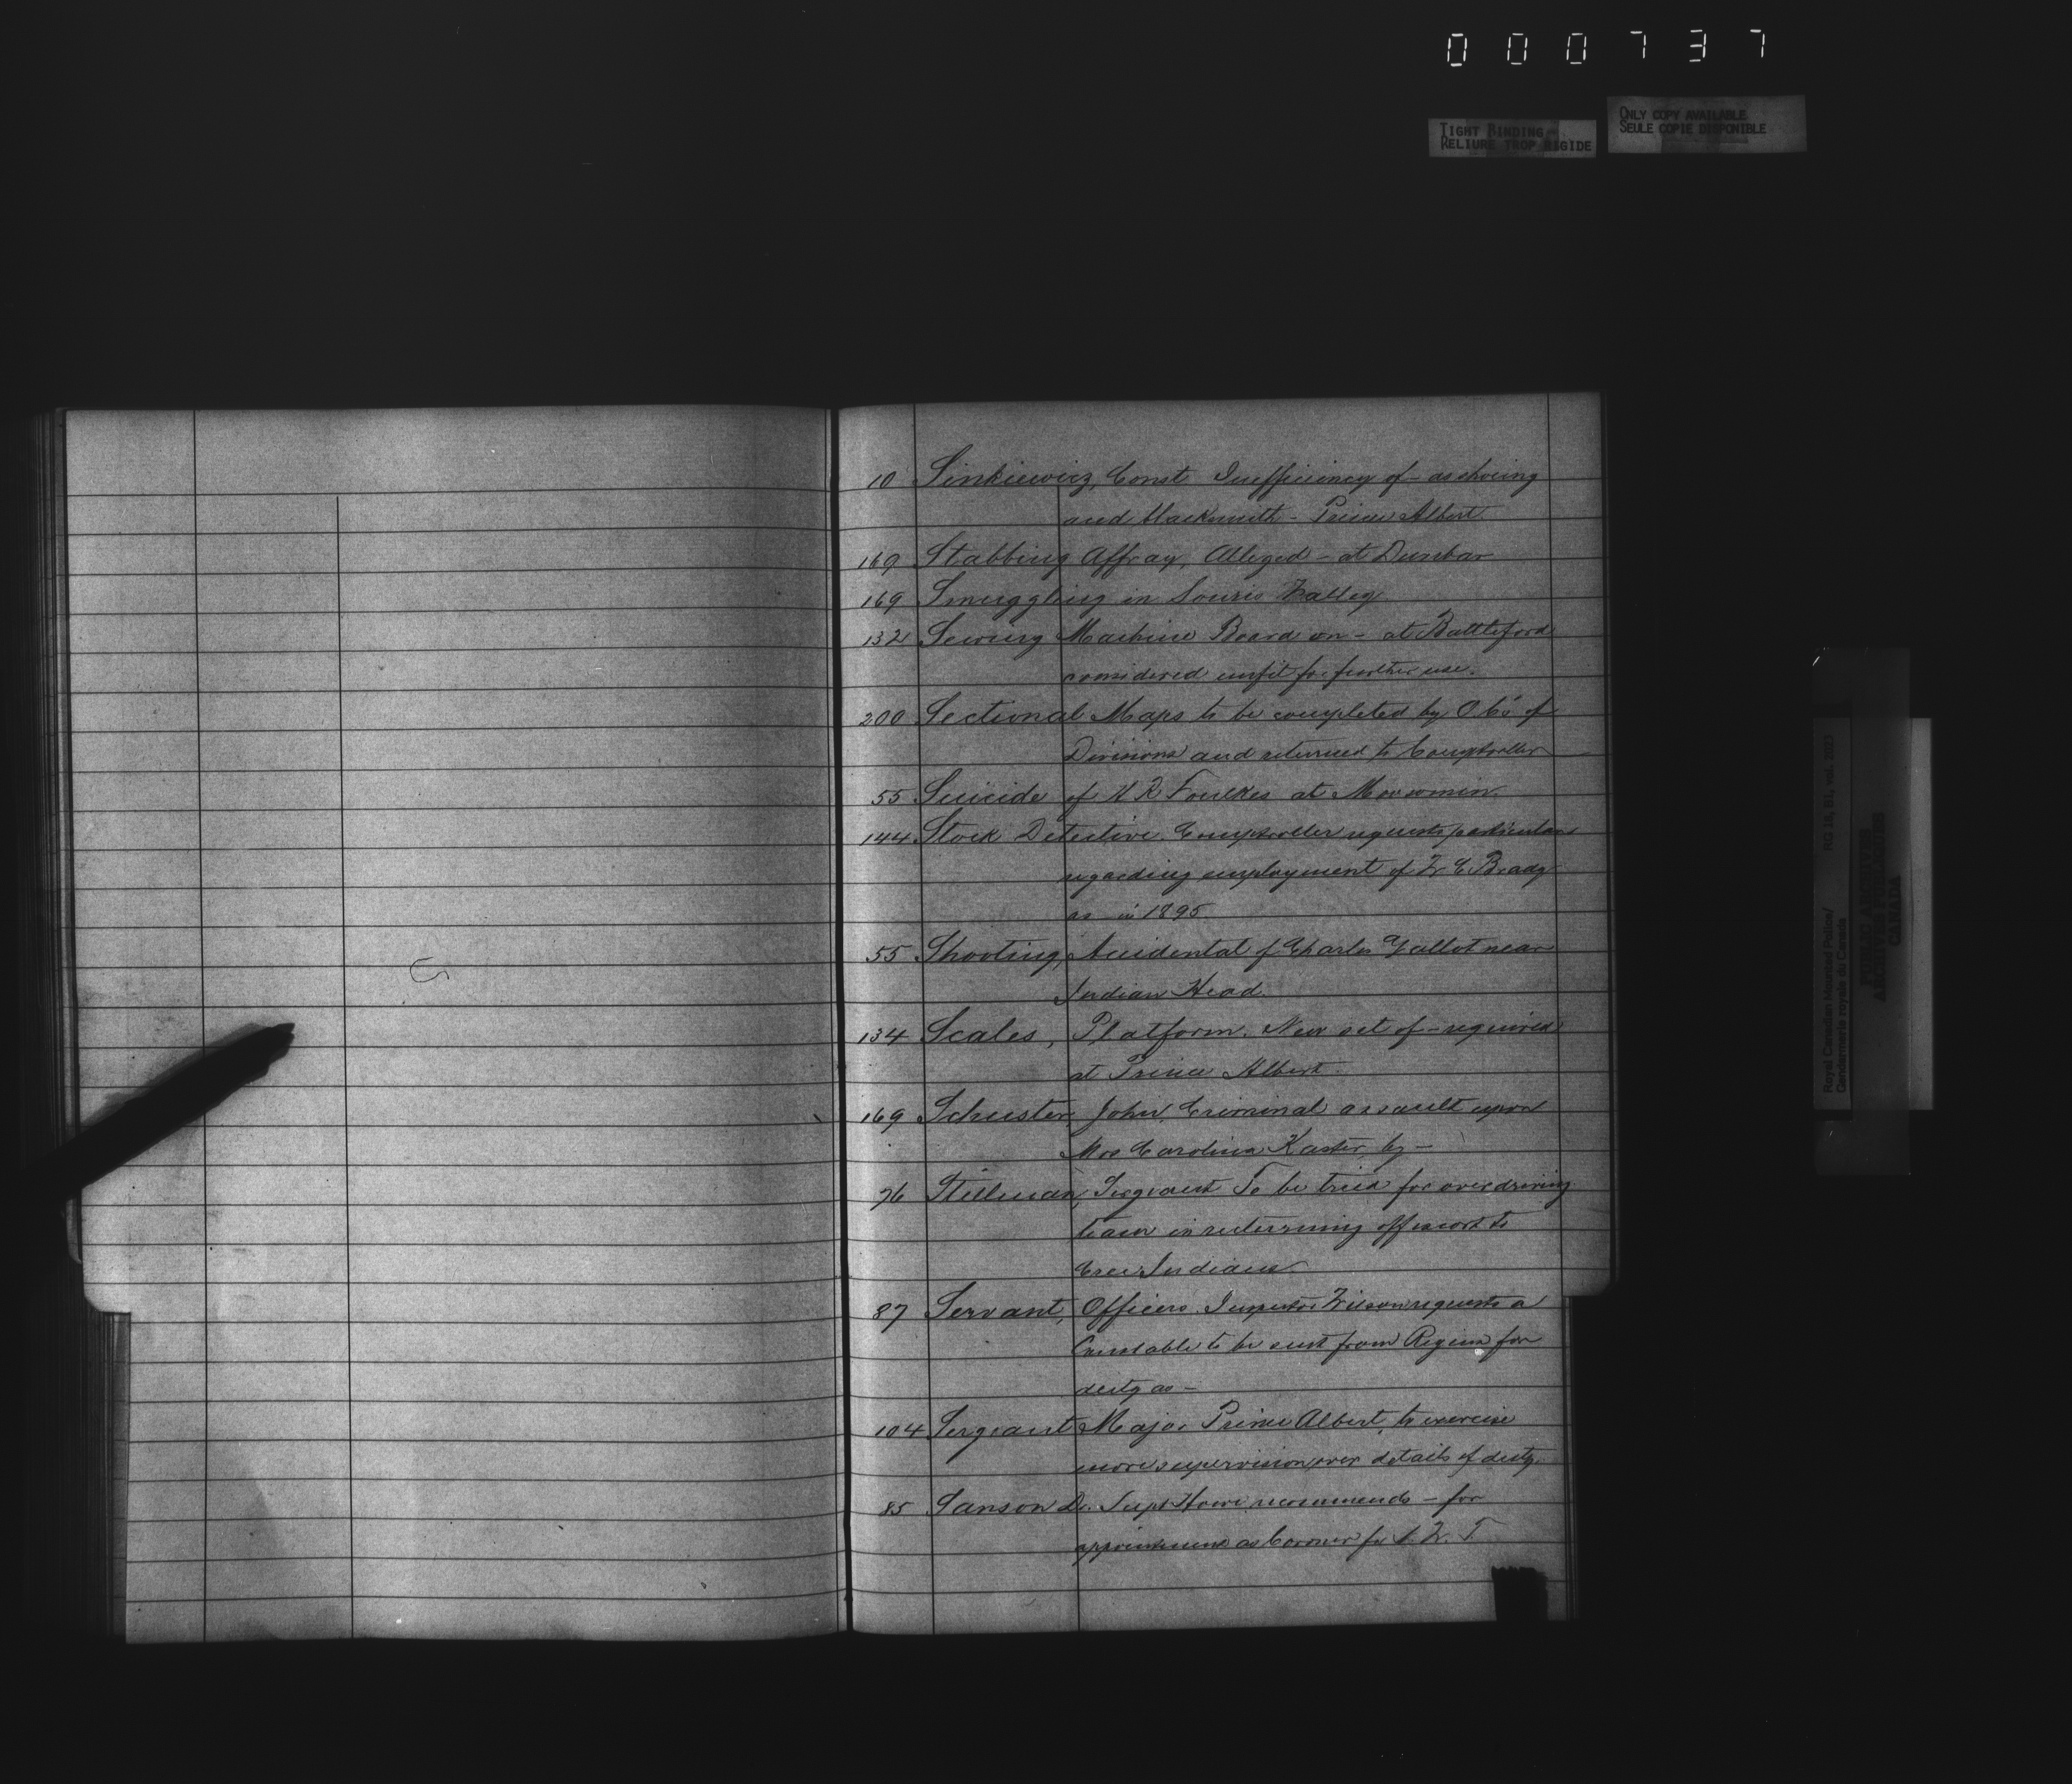 000737
TIGHT BINDING
RELIURE TROP RIGIDE
ONLY COPY AVAILABLE
SEULE COPIE DISPONIBLE
10 Sinkiewicz, Const Inefficiency of - as shoeing
and blacksmith - Prince Albert
169 Stabbing Affray, Alleged - at Dunbar
169 Smuggling in Souris Valley.
132 Sewing Machine Board on - at Battleford
considered unfit for further use.
200 Sectional Maps to be completed by O.C's of
Divisions and returned to Comptroller
55 Suicide of H R Foulkes at Moosomin.
144 Stock Detective. Comptroller requests particulars
regarding employment of W C Brady
as - in 1895
55 Shooting, Accidental of Charles near
Indian Head.
134 Scales, Platform. New set of - required
at Prince Albert.
169 Schuster, John, Criminal assault upon
Mrs Carolina Kaster, by -
76 Stillman, Sergeant To be tried for overdriving
team in returning off escort to
Cree Indians
87 Servant, Officers. Inspector Wilson requests a
Constable to be sent from Regina for
duty as -
104 Sergeant Major Prince Albert, to exercise
more supervision over details of duty.
85 Sanson Dr. Supt Howe recommends - for
appointment as Coroner for N. W. T.
Royal Canadian Mounted Police/
Gendarmerie royale du Canada
RG 18, B1, vol. 2123
PUBLIC ARCHIVES
ARCHIVES PUBLIQUES
CANADA